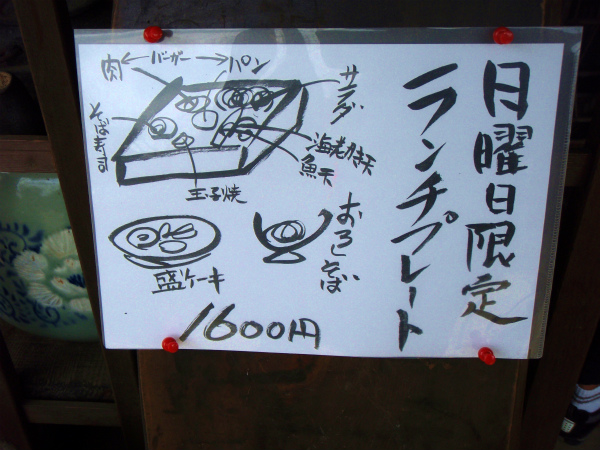 日曜日限定
ランチプレート
肉 ←バーガー→ パン
サラダ
そば寿司
海老天
魚天
玉子焼
おろしそば
盛ケーキ
1600円